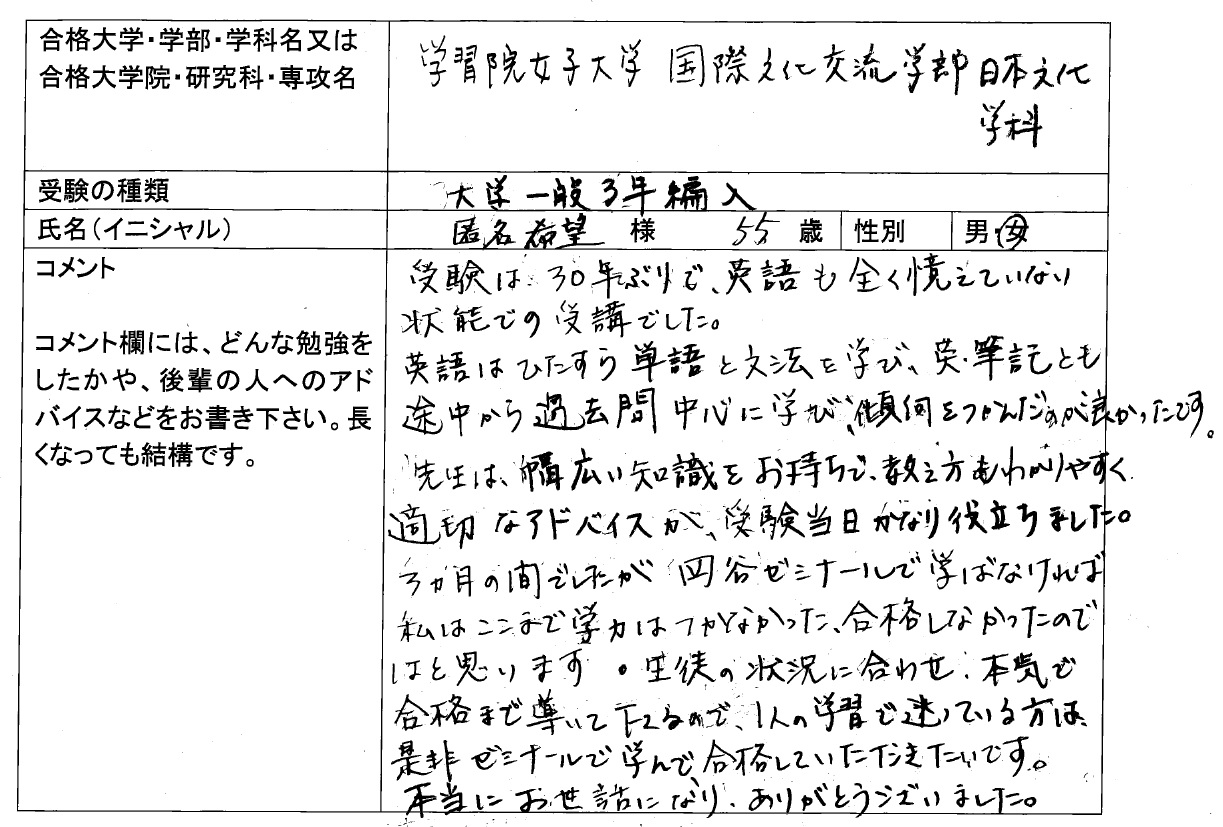 合格大学・学部・学科名又は
合格大学院・研究科・専攻名
学習院女子大学 国際文化交流学部 日本文化
学科
受験の種類
大学一般3年編入
氏名(イニシャル)
匿名希望 様 55 歳 性別 男・女
コメント
コメント欄には、どんな勉強を
したかや、後輩の人へのアド
バイスなどをお書き下さい。長
くなっても結構です。
受験は30年ぶりで、英語も全く憶えていない
状態での受講でした。
英語はひたすら単語と文法を学び、英・筆記とも
途中から過去問中心に学び、傾向をつかんだのが良かったです。
先生は、幅広い知識をお持ちで、教え方もわかりやすく
適切なアドバイスが、受験当日かなり役立ちました。
3ヵ月の間でしたが 四谷ゼミナールで学ばなければ
私はここまで学力はつかなかった、合格しなかったので
はと思います。生徒の状況に合わせ、本気で
合格まで導いて下さるので、1人の学習で迷っている方は、
是非ゼミナールで学んで合格していただきたいです。
本当にお世話になり、ありがとうございました。